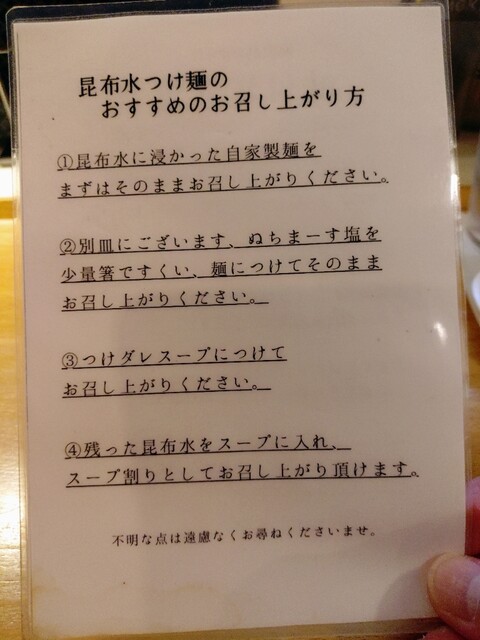 昆布水つけ麺の
おすすめのお召し上がり方
①昆布水に浸かった自家製麺を
まずはそのままお召し上がりください。
②別皿にございます、ぬちまーす塩を
少量箸ですくい、麺につけてそのまま
お召し上がりください。
③つけダレスープにつけて
お召し上がりください。
④残った昆布水をスープに入れ、
スープ割りとしてお召し上がり頂けます。
不明な点は遠慮なくお尋ねくださいませ。